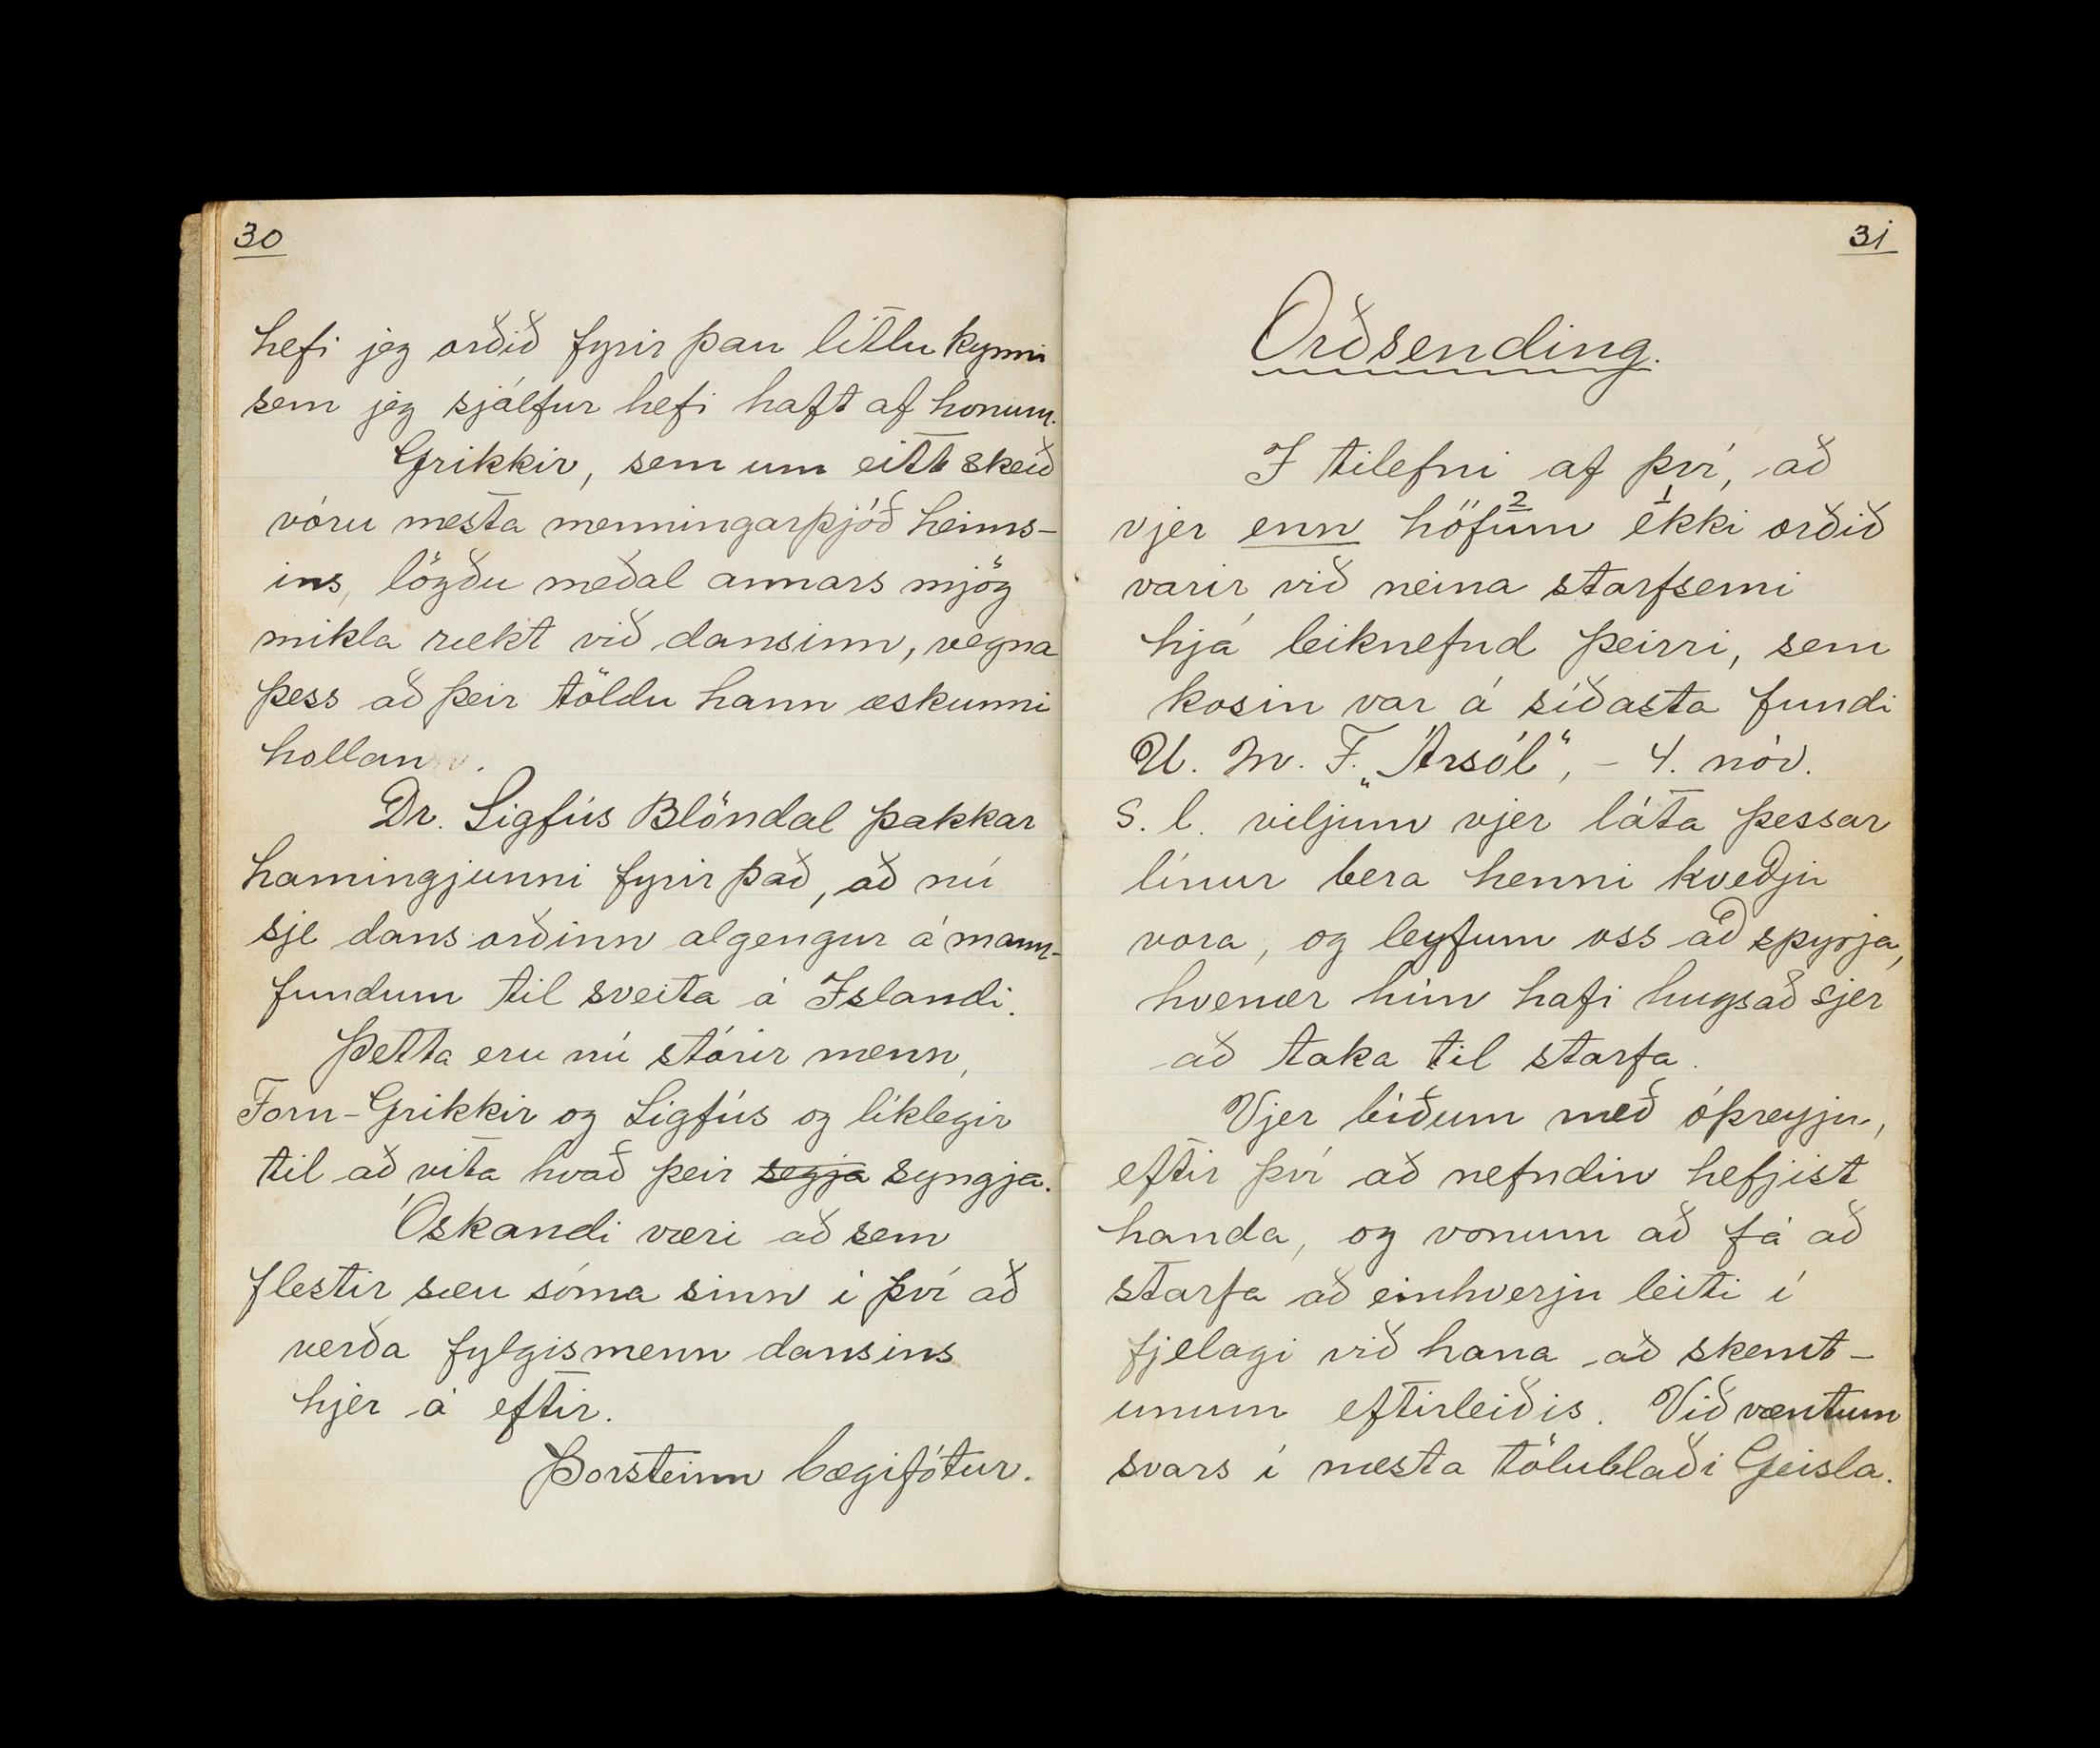 30
hefi jeg orðið fyrir þau litlu kynni
sem jeg sjálfur hefi haft af honum.
Grikkir, sem um eitt skeið
vóru mesta menningarþjóð heims-
ins, lögðu meðal annars mjög
mikla rækt við dansinn, vegna
þess að þeir töldu hann æskunni
hollan.
Dr. Sigfús Blöndal þakkar
hamingjunni fyrir það, að nú
sje dans orðinn algengur á mann-
fundum til sveita á Islandi.
Þetta eru nú stórir menn,
Forn-Grikkir og Sigfús og líklegir
til að vita hvað þeir segja syngja.
Óskandi væri að sem
flestir sæu sóma sinn í því að
verða fylgismenn dansins
hjer á eftir.
Þorsteinn bægifótur.
31
Orðsending.
I tilefni af því, að
vjer enn höfum 2 ekki 1 orðið
varir við neina starfsemi
hjá leiknefnd þeirri, sem
kosin var á síðasta fundi
U. M. F. „Ársól“, - 4. nóv.
s. l. viljum vjer láta þessar
línur bera henni kveðju
vora, og leyfum oss að spyrja,
hvenær hún hafi hugsað sjer
að taka til starfa.
Vjer bíðum með óþreyju,
eftir því að nefndin hefjist
handa, og vonum að fá að
starfa að einhverju leiti í
fjelagi við hana að skemt-
unum eftirleiðis. Við væntum
svars í næsta tölublaði Geisla.